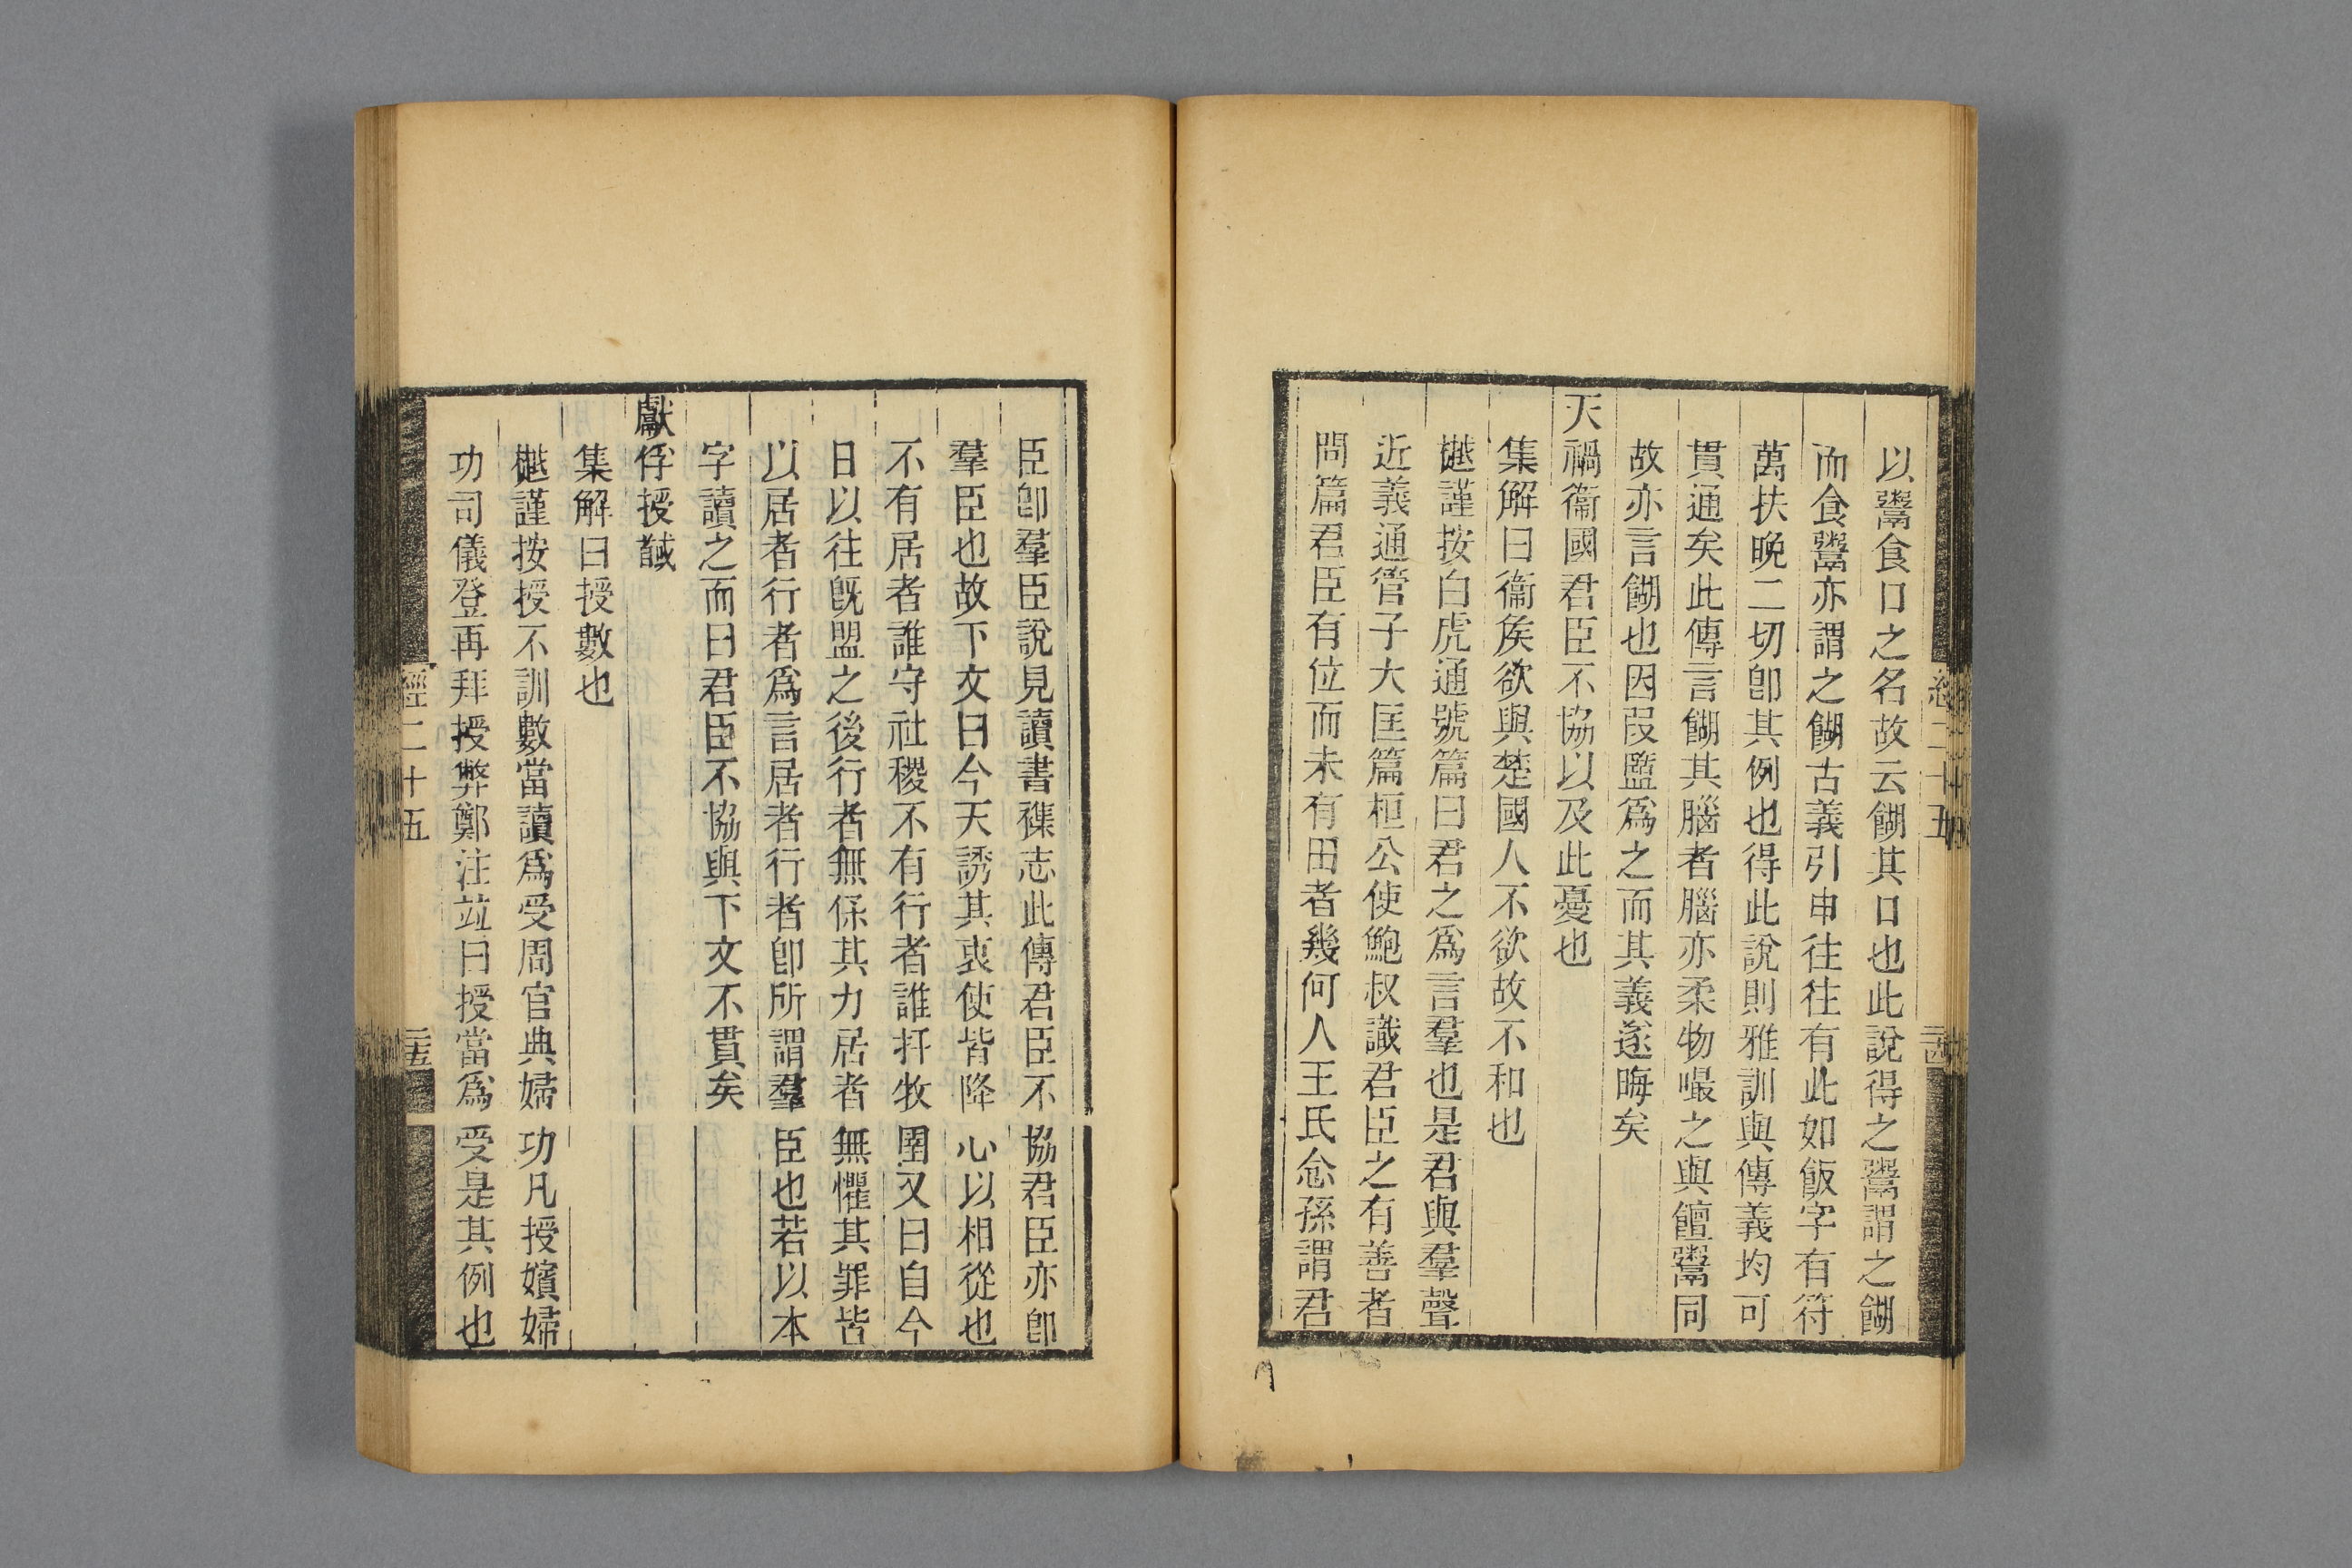 以鬻食口之名故云餬其口也此說得之鬻謂之餬
而食鬻亦謂之餬古義引申往往有此如飯字有符
萬扶晚二切卽其例也得此說則雅訓與傳義均可
貫通矣此傳言餬其腦者腦亦柔物嘬之與饘鬻同
故亦言餬也因叚盬爲之而其義遂晦矣
天禍衞國君臣不協以及此憂也
集解曰衞矦欲與楚國人不欲故不和也
樾謹按白虎通號篇曰君之爲言羣也是君與羣聲
近義通管子大匡篇桓公使鮑叔識君臣之有善者
問篇君臣有位而未有田者幾何人王氏念孫謂君
經二十五
臣卽羣臣說見讀書襍志此傳君臣不協君臣亦卽
羣臣也故下文曰今天誘其衷使皆降心以相從也
不有居者誰守社稷不有行者誰扞牧圉又曰自今
日以往旣盟之後行者無保其力居者無懼其罪皆
以居者行者爲言居者行者卽所謂羣臣也若以本
字讀之而曰君臣不協與下文不貫矣
獻俘授馘
集解曰授數也
樾謹按授不訓數當讀爲受周官典婦功凡授嬪婦
功司儀登再拜授幣鄭注竝曰授當爲受是其例也
經二十五